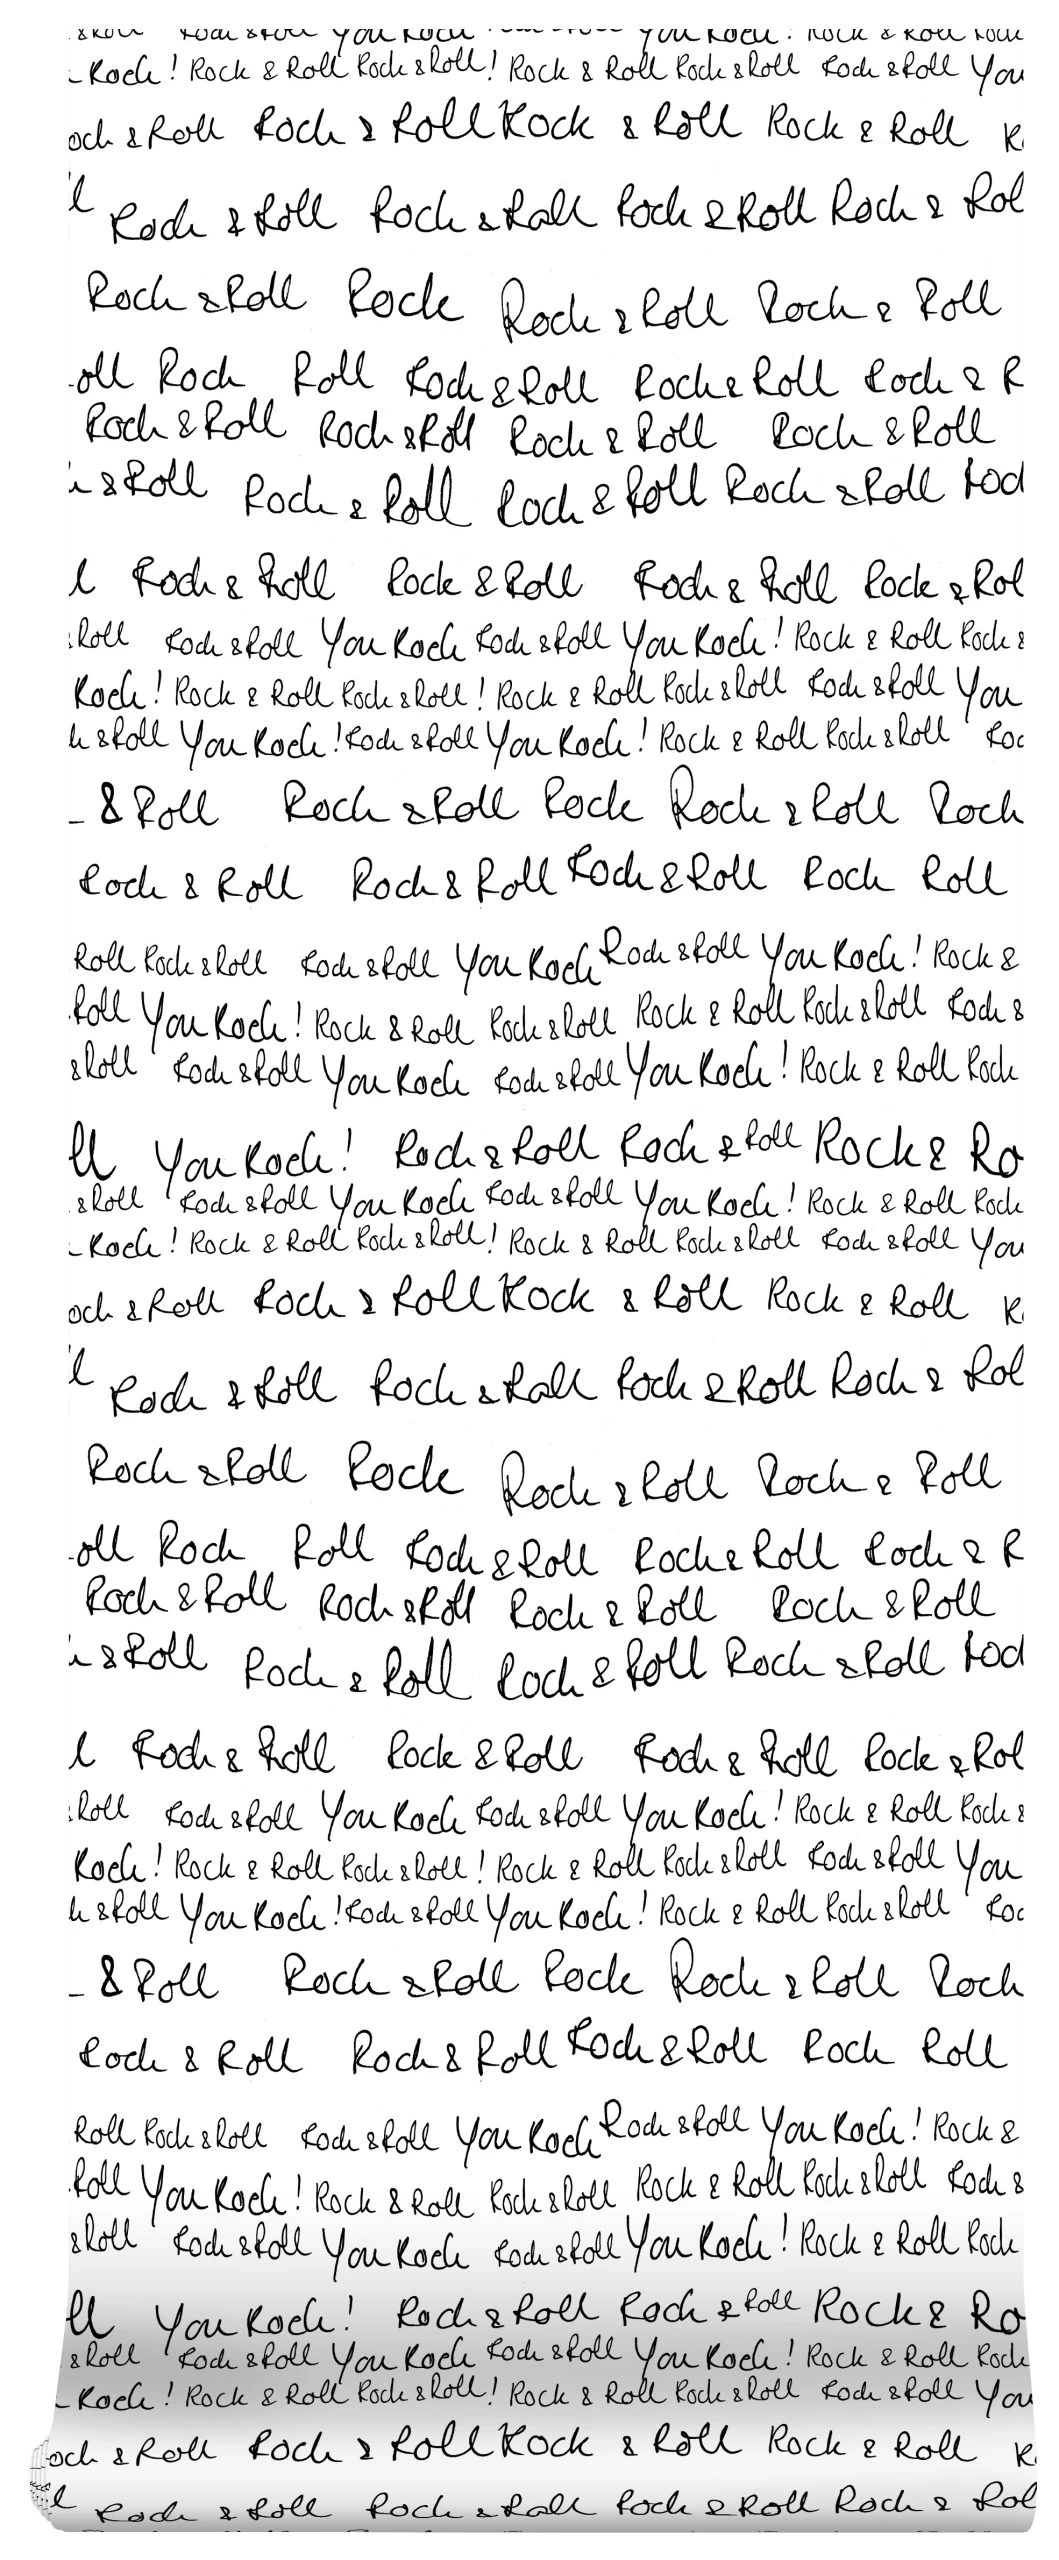 & Roll Rock & Roll You Rock Rock & Roll You Rock! Rock & Roll Rock
Rock! Rock & Roll Rock & Roll! Rock & Roll Rock & Roll Rock & Roll You
ock & Roll Rock & Roll Rock & Roll Rock & Roll R
ll Rock & Roll Rock & Roll Rock & Roll Rock & Rol
Rock & Roll Rock Rock & Roll Rock & Roll
oll Rock Roll Rock & Roll Rock & Roll Rock & R
Rock & Roll Rock & Roll Rock & Roll Rock & Roll
& Roll Rock & Roll Rock & Roll Rock & Roll Roc
l Rock & Roll Rock & Roll Rock & Roll Rock & Rol
Roll Rock & Roll You Rock Rock & Roll You Rock! Rock & Roll Rock &
Rock! Rock & Roll Rock & Roll! Rock & Roll Rock & Roll Rock & Roll You
k & Roll You Rock! Rock & Roll You Rock! Rock & Roll Rock & Roll Roc
& Roll Rock & Roll Rock Rock & Roll Rock
Rock & Roll Rock & Roll Rock & Roll Rock Roll
Roll Rock & Roll Rock & Roll You Rock Rock & Roll You Rock! Rock &
Roll You Rock! Rock & Roll Rock & Roll Rock & Roll Rock & Roll Rock &
& Roll Rock & Roll You Rock Rock & Roll You Rock! Rock & Roll Rock
ll You Rock! Rock & Roll Rock & Roll Rock & Ro
& Roll Rock & Roll You Rock Rock & Roll You Rock! Rock & Roll Rock
Rock! Rock & Roll Rock & Roll! Rock & Roll Rock & Roll Rock & Roll You
ock & Roll Rock & Roll Rock & Roll Rock & Roll R
ll Rock & Roll Rock & Roll Rock & Roll Rock & Rol
Rock & Roll Rock Rock & Roll Rock & Roll
oll Rock Roll Rock & Roll Rock & Roll Rock & R
Rock & Roll Rock & Roll Rock & Roll Rock & Roll
& Roll Rock & Roll Rock & Roll Rock & Roll Roc
l Rock & Roll Rock & Roll Rock & Roll Rock & Rol
Roll Rock & Roll You Rock Rock & Roll You Rock! Rock & Roll Rock &
Rock! Rock & Roll Rock & Roll! Rock & Roll Rock & Roll Rock & Roll You
k & Roll You Rock! Rock & Roll You Rock! Rock & Roll Rock & Roll Roc
& Roll Rock & Roll Rock Rock & Roll Rock
Rock & Roll Rock & Roll Rock & Roll Rock Roll
Roll Rock & Roll Rock & Roll You Rock Rock & Roll You Rock! Rock &
Roll You Rock! Rock & Roll Rock & Roll Rock & Roll Rock & Roll Rock &
& Roll Rock & Roll You Rock Rock & Roll You Rock! Rock & Roll Rock
ll You Rock! Rock & Roll Rock & Roll Rock & Ro
& Roll Rock & Roll You Rock Rock & Roll You Rock! Rock & Roll Rock
Rock! Rock & Roll Rock & Roll! Rock & Roll Rock & Roll Rock & Roll You
ock & Roll Rock & Roll Rock & Roll Rock & Roll R
l Rock & Roll Rock & Roll Rock & Roll Rock & Rol